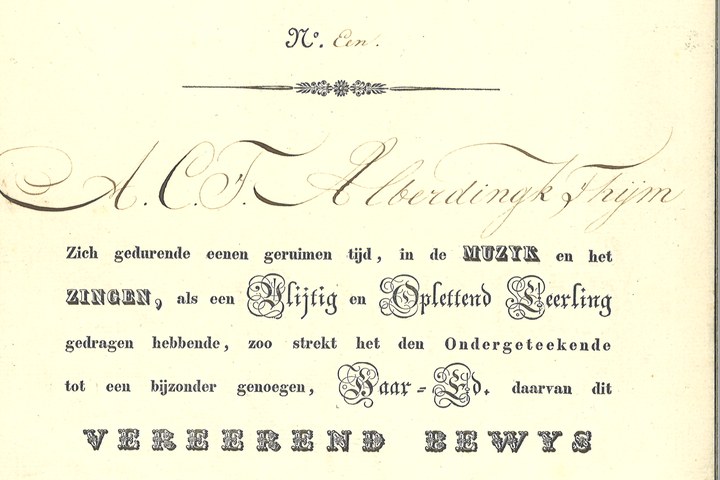 N°. Een.
A. C. F. Alberdingk Thijm
Zich gedurende eenen geruimen tijd, in de MUZYK en het
ZINGEN, als een Vlijtig en Oplettend Leerling
gedragen hebbende, zoo strekt het den Ondergeteekende
tot een bijzonder genoegen, Haar-Ed. daarvan dit
VEREEREND BEWYS